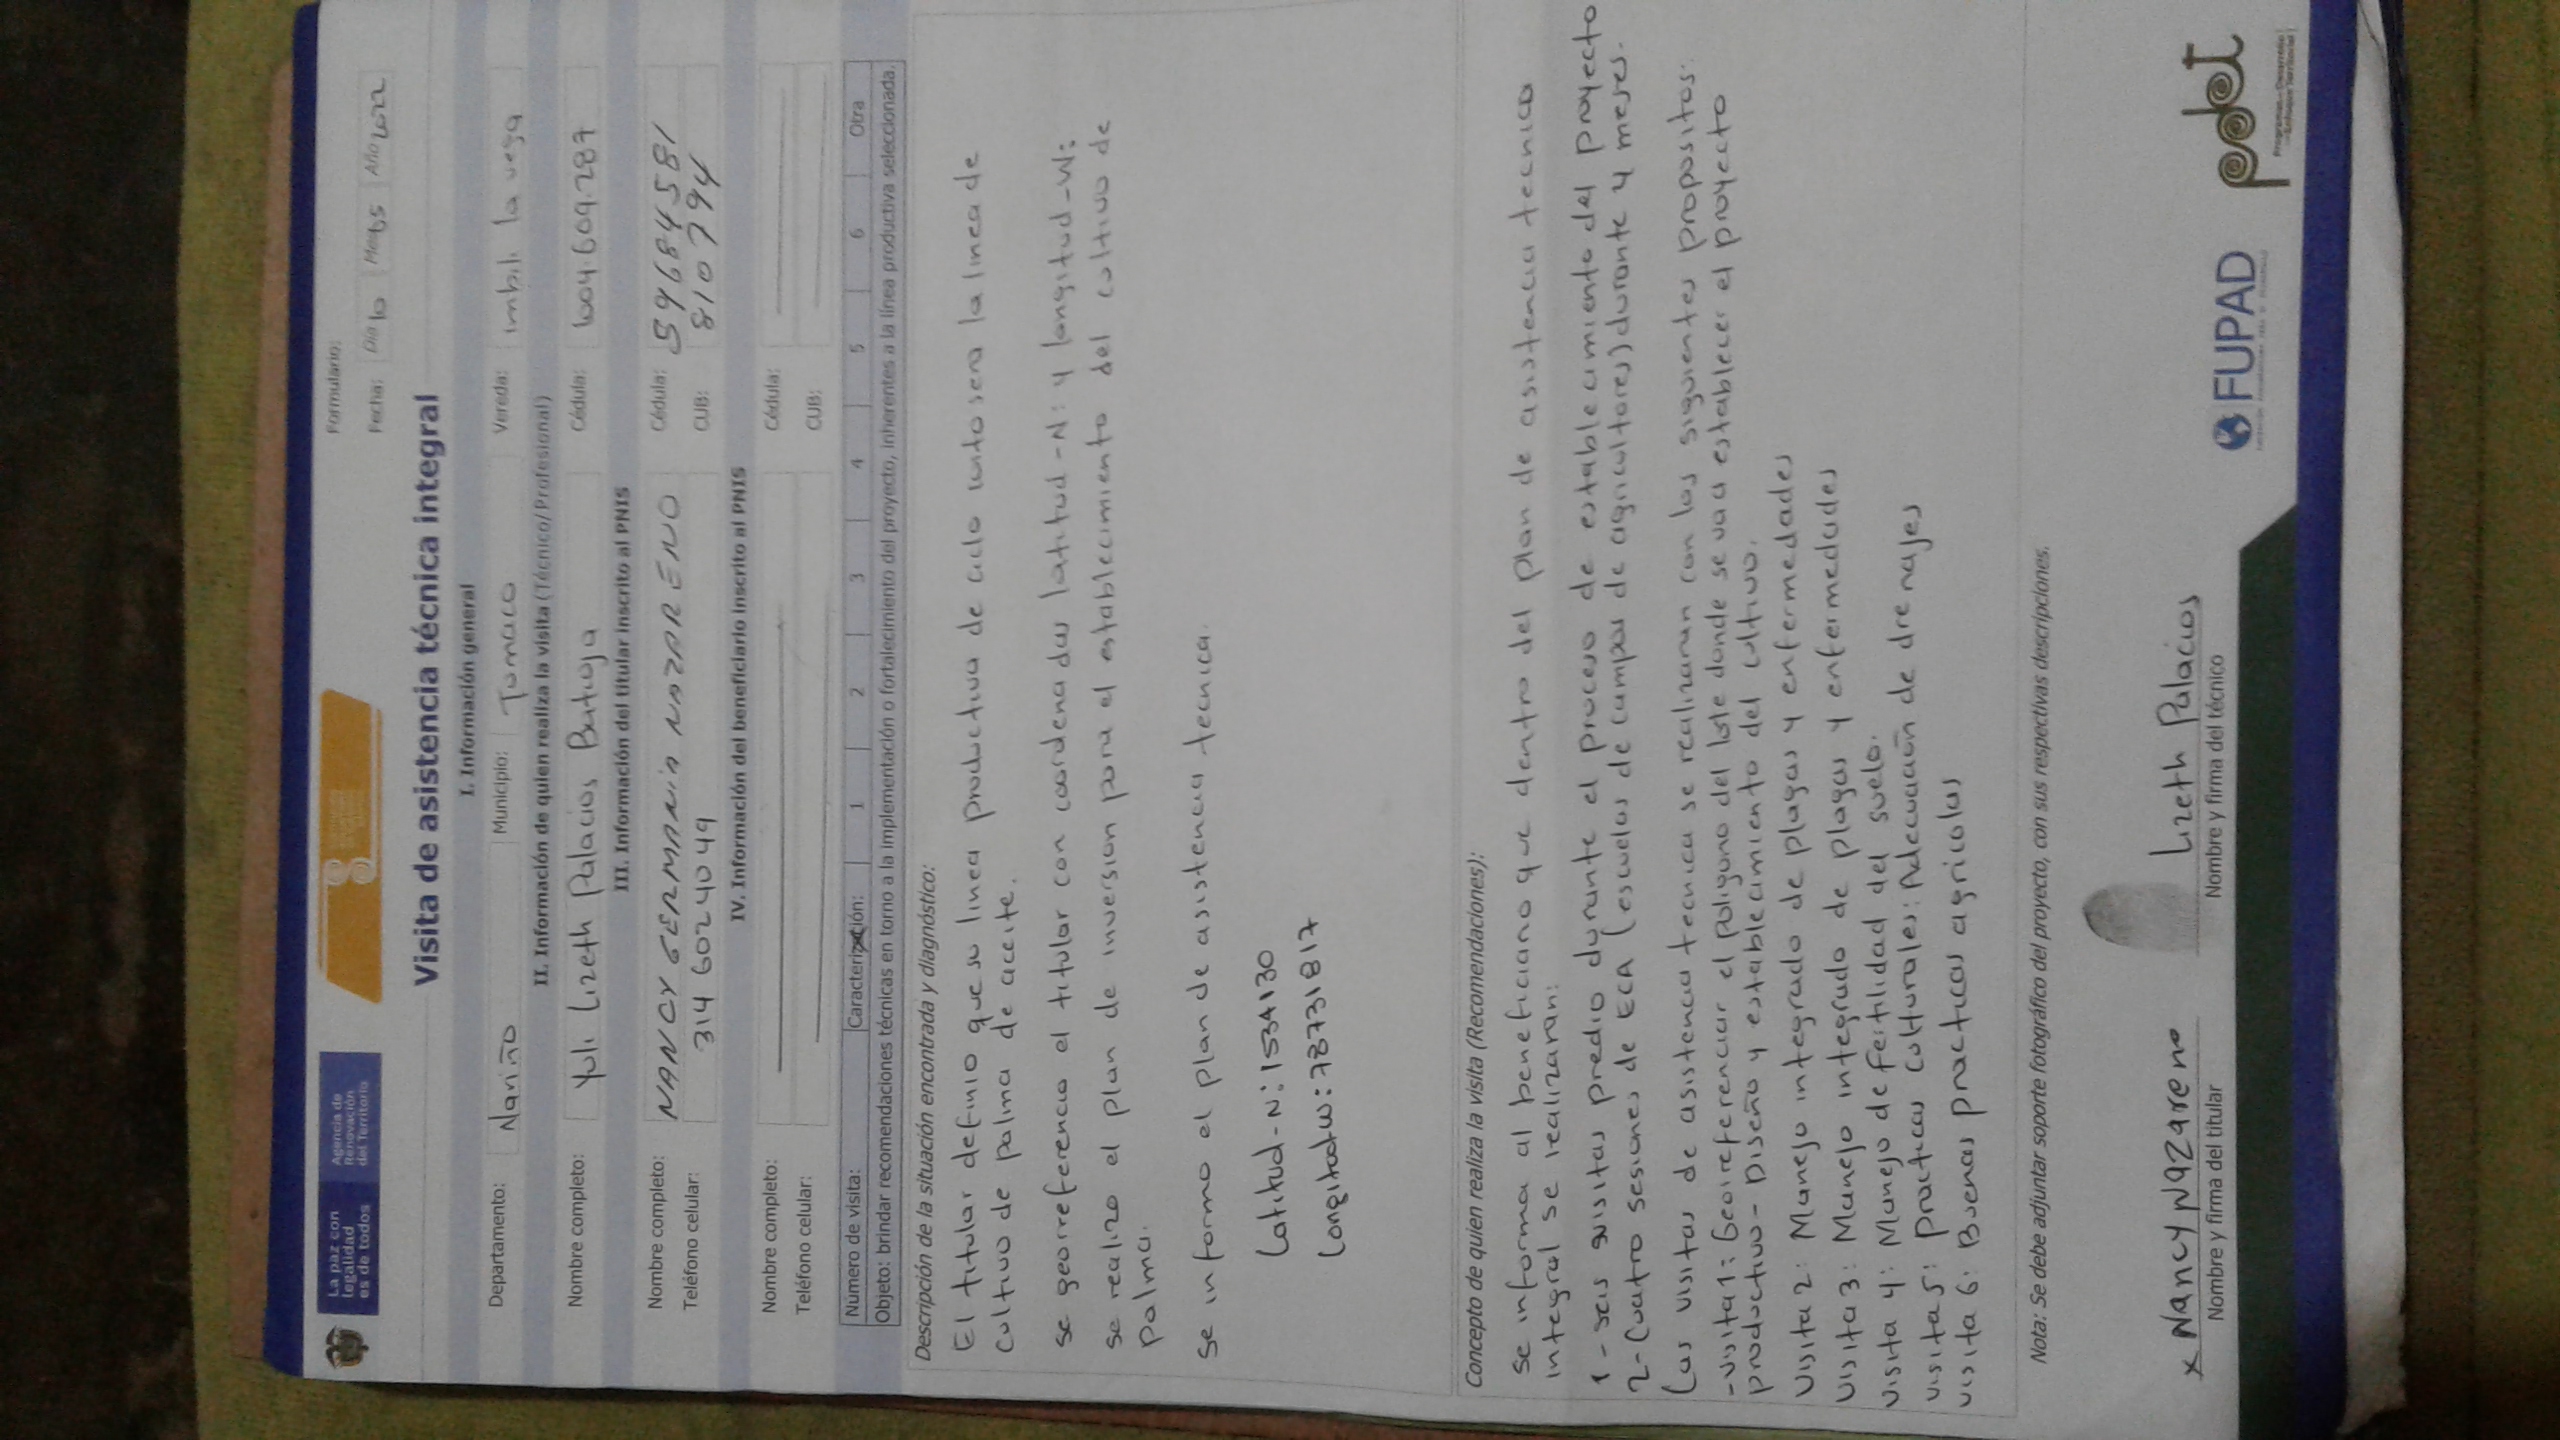 La paz con
legalidad
es de todos
Agencia de
Renovación
del Territorio
Formulario:
Fecha: Día 10 Mes 05 Año 2022
Visita de asistencia técnica integral
I. Información general
Departamento: Nariño Municipio: Tumaco Vereda: imbili la vega
II. Información de quien realiza la visita (Técnico/Profesional)
Nombre completo: Yuli Lizeth Palacios Batioja Cédula: 1004.609.287
III. Información del titular inscrito al PNIS
Nombre completo: NANCY GERMANIA NAZARENO Cédula: 59684581
Teléfono celular: 314 6024049 CUB: 810794
IV. Información del beneficiario inscrito al PNIS
Nombre completo: Cédula:
Teléfono celular: CUB:
Numero de visita: Caracterización: 1 2 3 4 5 6 Otra
Objeto: brindar recomendaciones técnicas en torno a la implementación o fortalecimiento del proyecto, inherentes a la línea productiva seleccionada.
Descripción de la situación encontrada y diagnóstico:
El titular definio que su linea productiva de ciclo corto sera la linea de
cultivo de palma de aceite.
se georreferencio el titular con coordenadas latitud-N: y longitud-W:
se realizo el plan de inversion para el establecimiento del cultivo de
palma.
se informo el plan de asistencia tecnica.
Latitud-N: 1534130
Longitudw: 78731817
Concepto de quien realiza la visita (Recomendaciones):
se informa al beneficiario que dentro del plan de asistencia tecnica
integral se realizaran:
1 - seis visitas predio durante el proceso de establecimiento del proyecto
2- Cuatro sesiones de ECA (escuelas de campos de agricultores) durante 4 meses.
Las visitas de asistencia tecnica se realizaran con los siguientes propositos:
-visita 1: Georeferenciar el poligono del lote donde se va a establecer el proyecto
productivo - Diseño y establecimiento del cultivo.
Visita 2: Manejo integrado de plagas y enfermedades
Visita 3: Manejo integrado de plagas y enfermedades
Visita 4: Manejo de fertilidad del suelo.
visita 5: practicas culturales: Adecuación de drenajes
visita 6: Buenas practicas agricolas
Nota: Se debe adjuntar soporte fotográfico del proyecto, con sus respectivas descripciones.
x Nancy Nazareno
Nombre y firma del titular
Lizeth Palacios
Nombre y firma del técnico
FUPAD
pdet
Programas de Desarrollo
con Enfoque Territorial